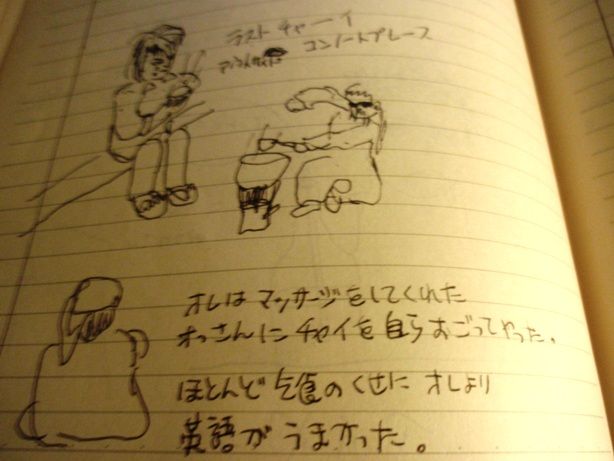 ラスト チャーイ
コンノートプレース
オレは マッサージをしてくれた
オっさんに チャイを 自らおごってやった。
ほとんど 乞食の くせに オレより
英語が うまかった。